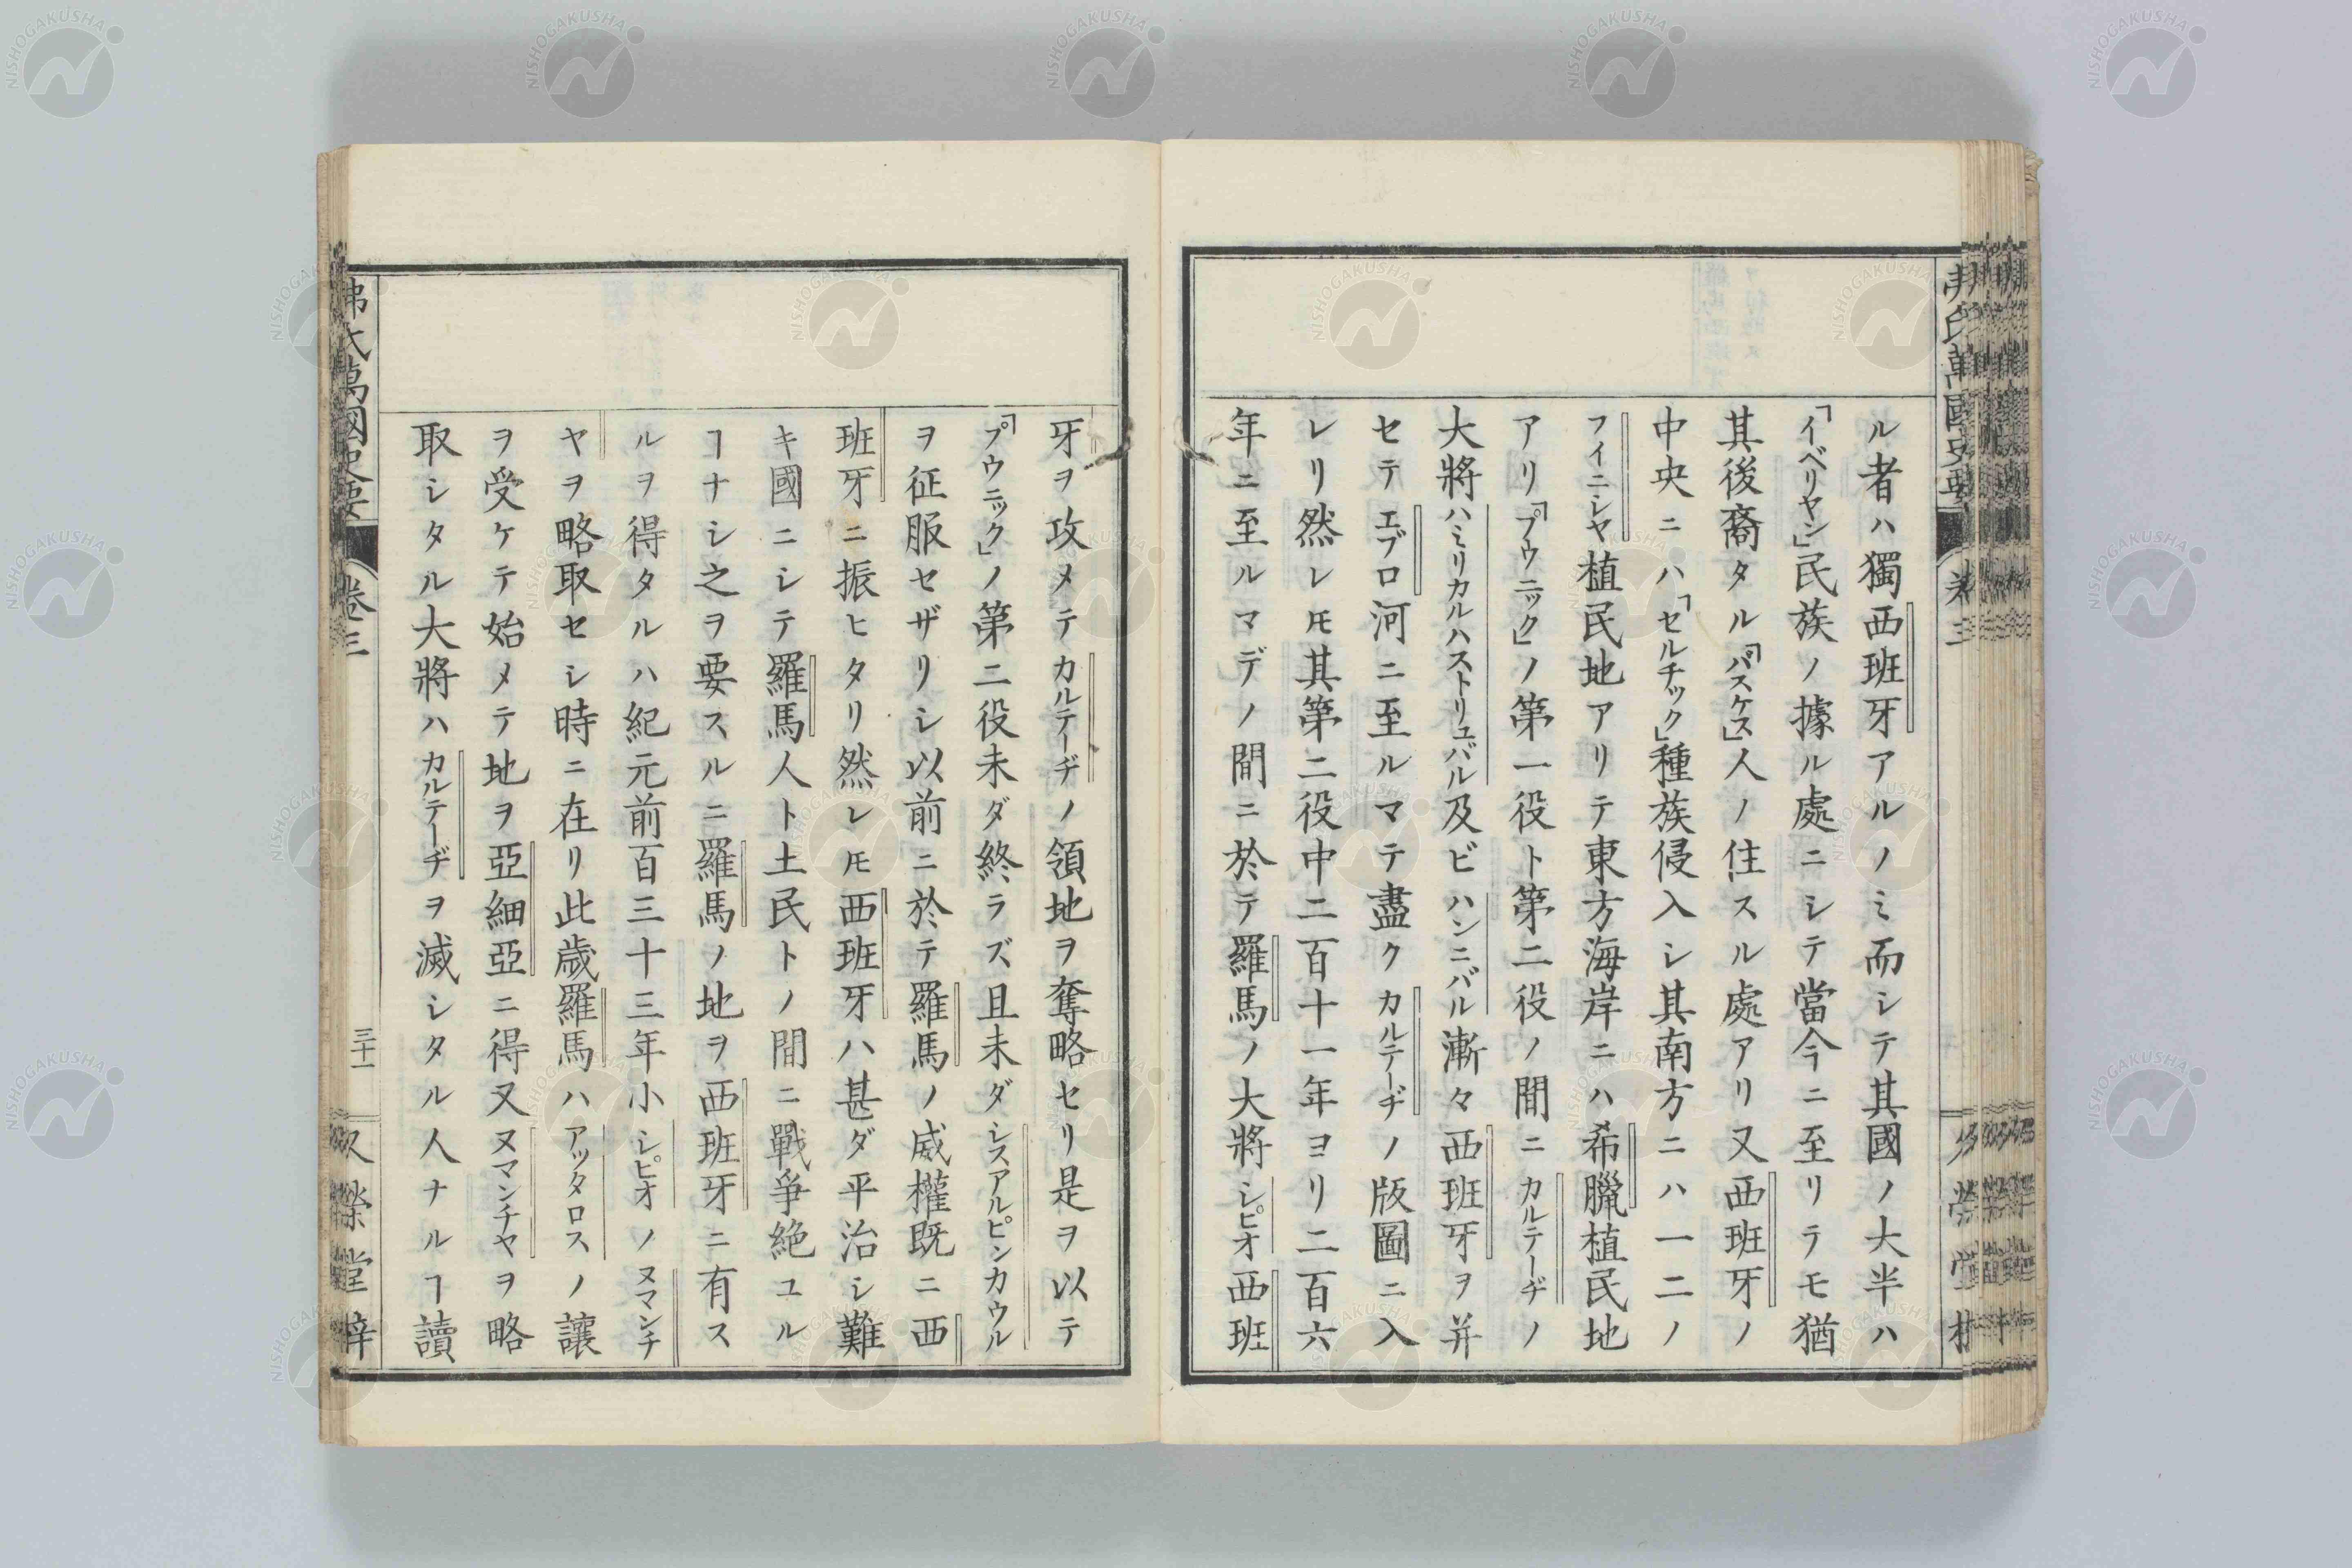 ル者ハ獨西班牙アルノミ而シテ其國ノ大半ハ
「イベリヤン」民族ノ據ル處ニシテ當今ニ至リテモ猶
其後裔タル「バスケス」人ノ住スル處アリ又西班牙ノ
中央ニハ「セルチック」種族侵入シ其南方ニハ一二ノ
フイニシヤ植民地アリテ東方海岸ニハ希臘植民地
アリ「プウニック」ノ第一役ト第二役ノ間ニカルテーヂノ
大將ハミリカルハストリュバル及ビハンニバル漸々西班牙ヲ并
セテエブロ河ニ至ルマテ盡クカルテーヂノ版圖ニ入
レリ然レ𪜈其第二役中二百十一年ヨリ二百六
年ニ至ルマデノ間ニ於テ羅馬ノ大將シピオ西班
牙ヲ攻メテカルテーヂノ領地ヲ奪略セリ是ヲ以テ
「プウニック」ノ第二役未ダ終ラズ且未ダシスアルピンカウル
ヲ征服セザリシ以前ニ於テ羅馬ノ威權既ニ西
班牙ニ振ヒタリ然レ𪜈西班牙ハ甚ダ平治シ難
キ國ニシテ羅馬人ト土民トノ間ニ戰爭絶ユル
ヿナシ之ヲ要スルニ羅馬ノ地ヲ西班牙ニ有ス
ルヲ得タルハ紀元前百三十三年小シピオノヌマンチ
ヤヲ略取セシ時ニ在リ此歳羅馬ハアッタロスノ讓
ヲ受ケテ始メテ地ヲ亞細亞ニ得又ヌマンチヤヲ略
取シタル大將ハカルテーヂヲ滅シタル人ナルヿ讀
弗氏萬國史要 卷三 三十一 又榮堂梓
NISHOGAKUSHA